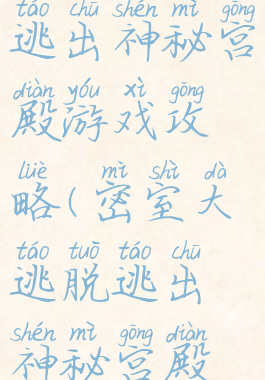 táo chū shén mì gōng
逃出神秘宫
diàn yóu xì gōng
殿游戏攻
lüè mì shì dà
略(密室大
táo tuō táo chū
逃脱逃出
shén mì gōng diàn
神秘宫殿